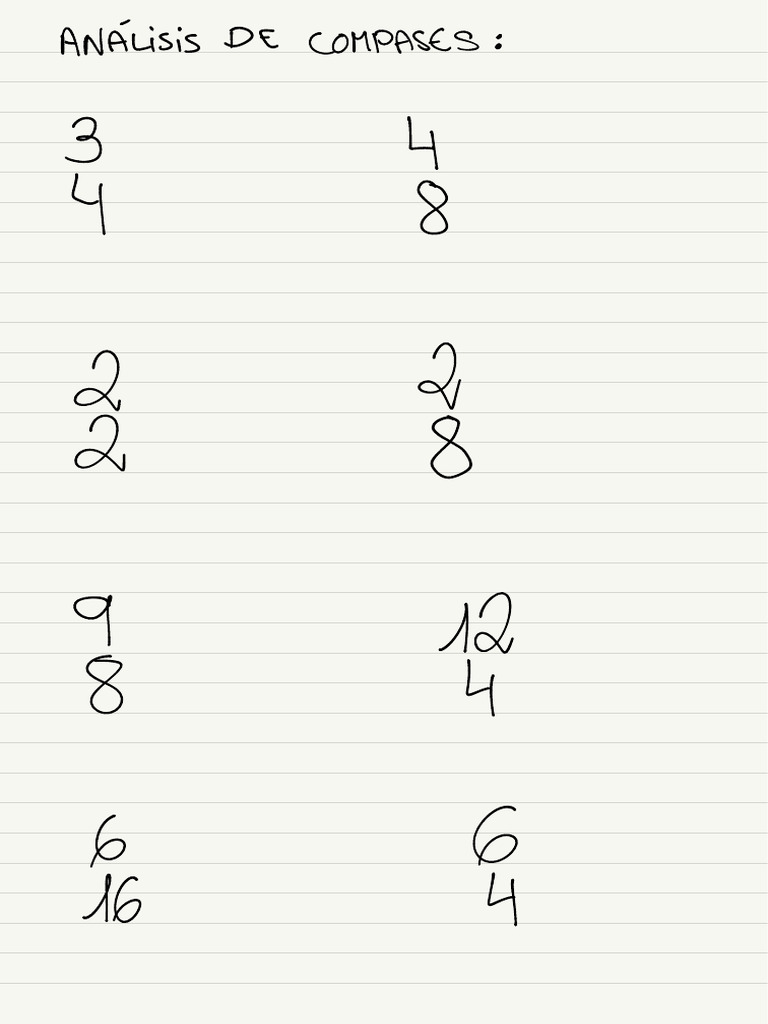 ANÁLISIS DE COMPASES:
3 4
4 8
2 2
2 8
9 12
8 4
6 6
16 4